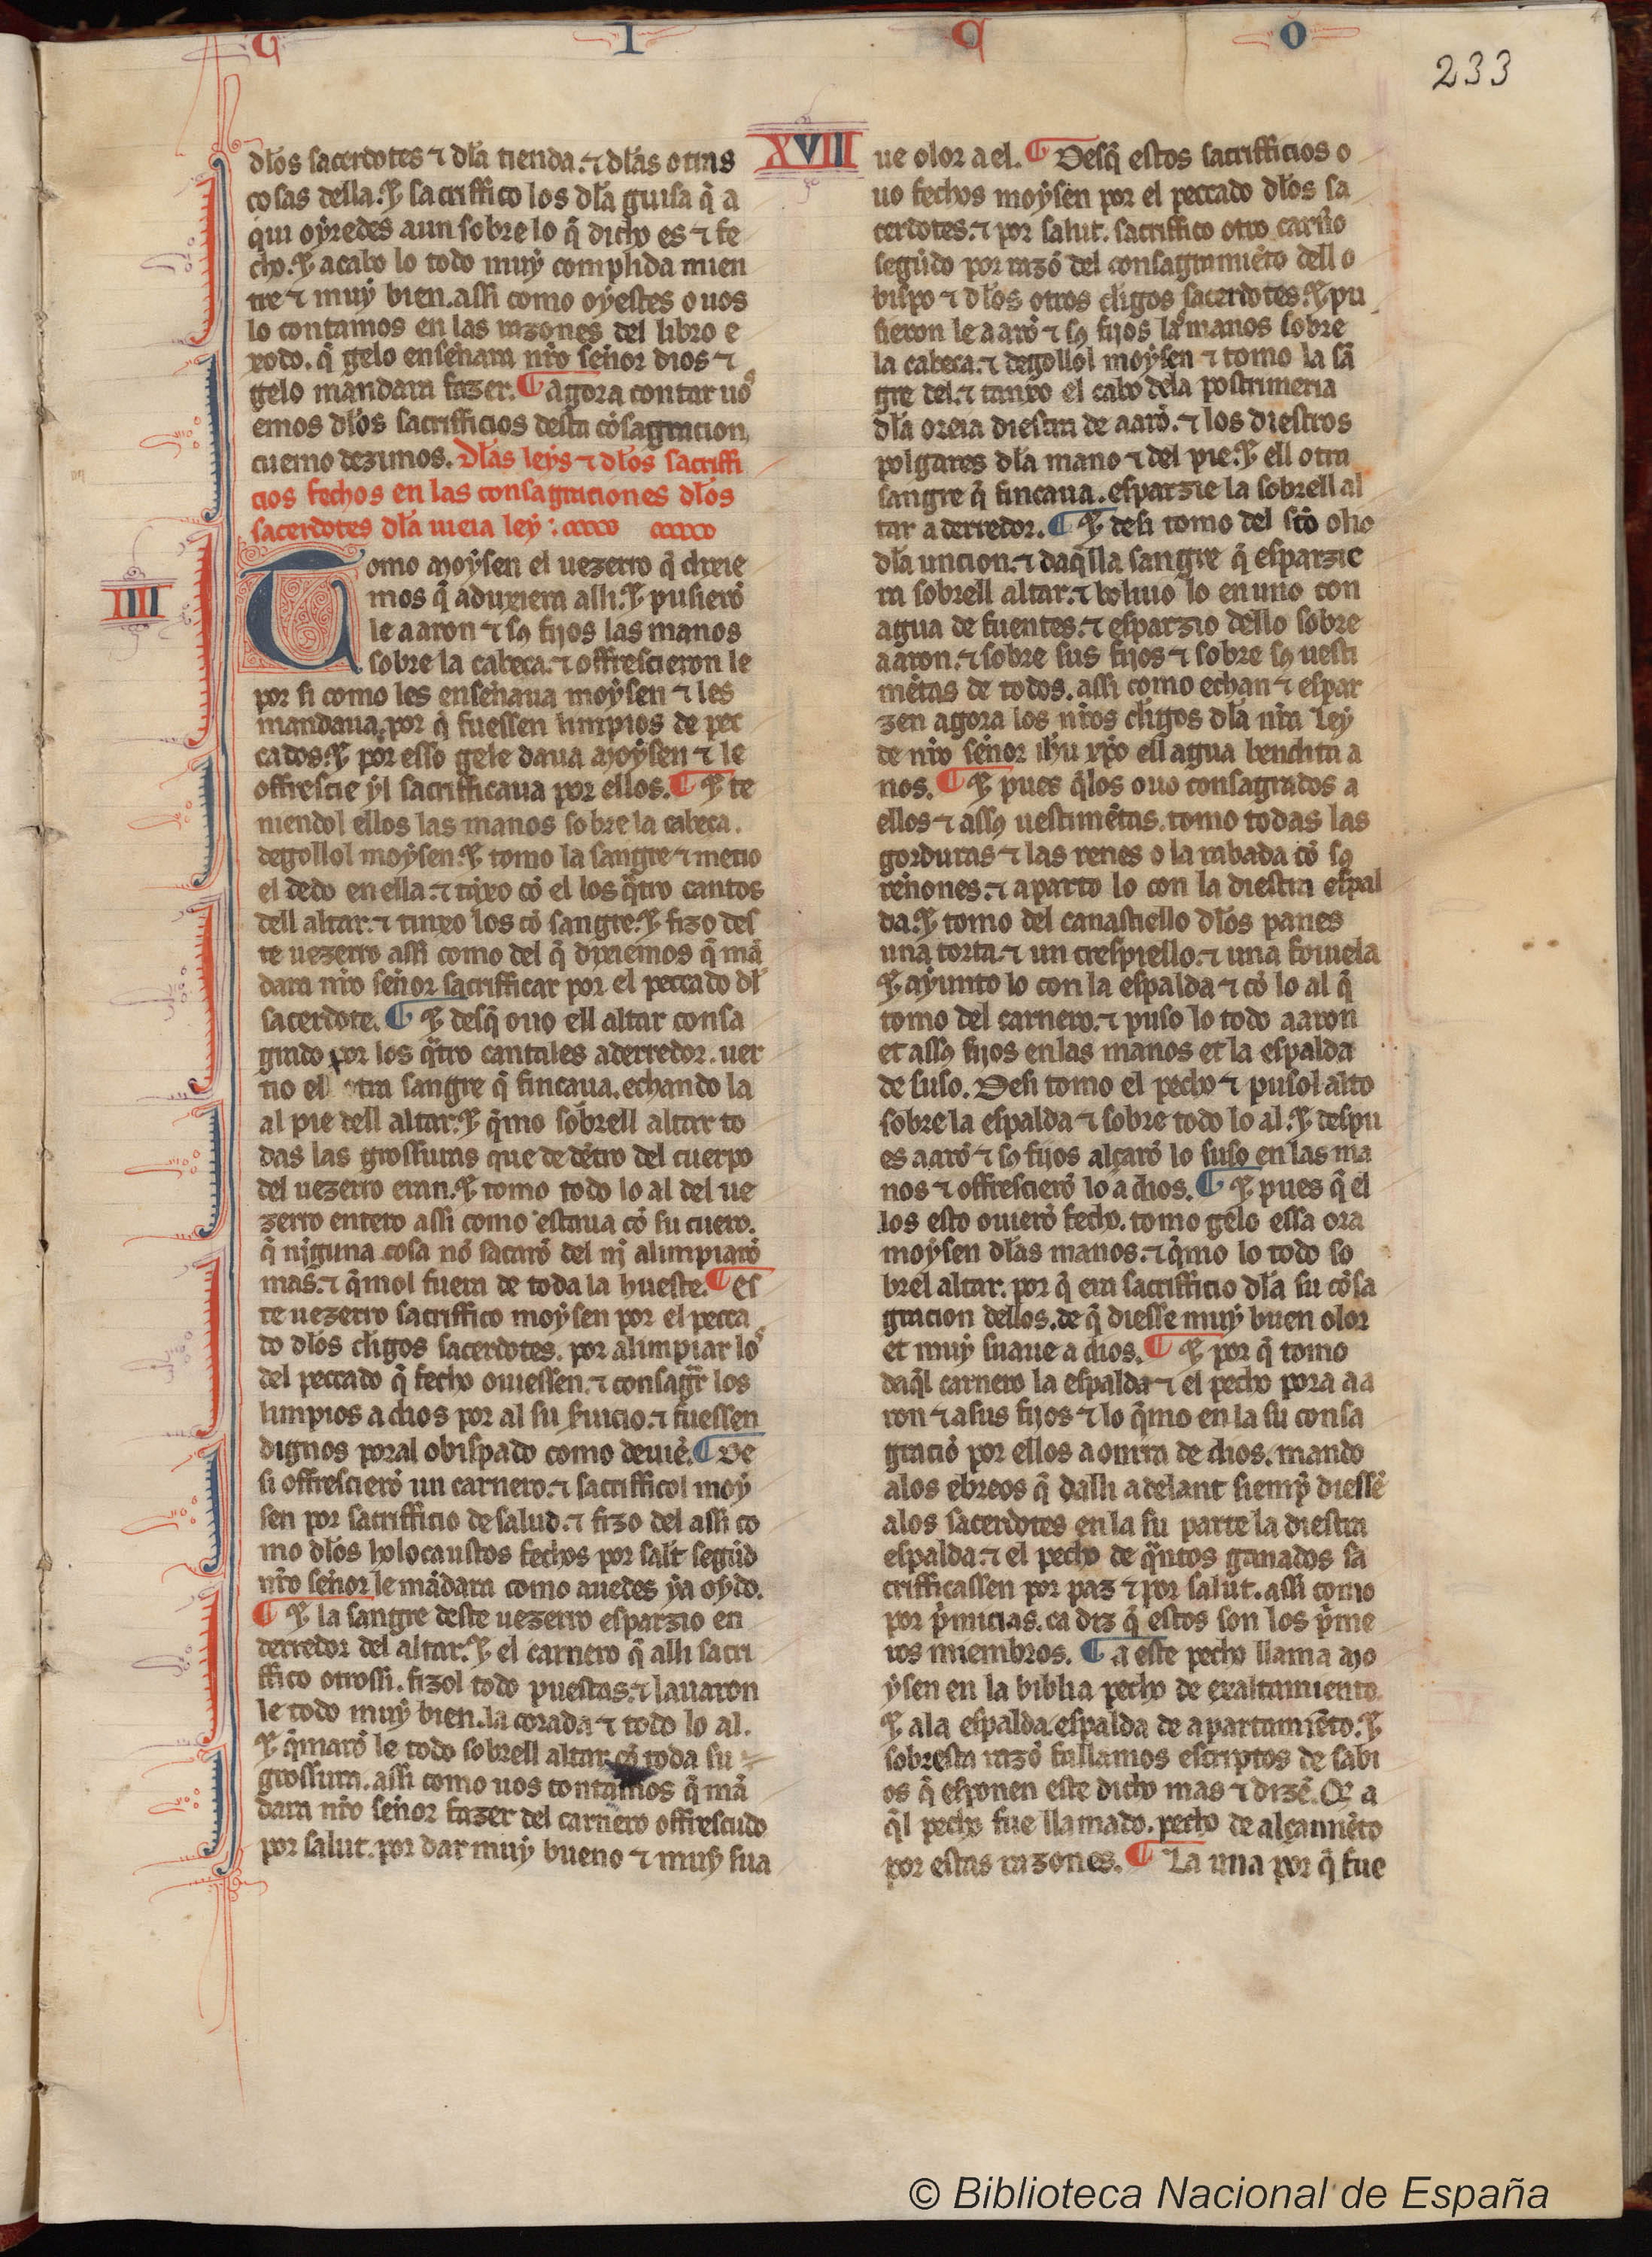 G I C O
233
XVIII
dłos sacerdotes ⁊ dła tienda. ⁊ dłas otras
cosas della. ⁊ sacriffico los dła guisa q̃ a
qui oyredes aun sobre lo q̃ dicho es ⁊ fe
cho. ⁊ acabo lo todo muy complida mien
tre ⁊ muy bien. assi como oyestes o uos
lo contamos en las razones del libro e
xodo. q̃ gelo ensennara nr̃o sennor dios ⁊
gelo mandara fazer. ¶ agora contar uos
emos dłos sacrifficios desta cõsagracion,
cuemo dezimos. Dłas leys ⁊ dłos sacriffi
cios fechos en las consagraciones dłos
sacerdotes dła uieia ley:
IIII
Tomo moysen el uezerro q̃ dixie
mos q̃ aduxiera alli. ⁊ pusierõ
le aaron ⁊ sꝯ fijos las manos
sobre la cabeça. ⁊ offrescieron le
por si como les ensennaua moysen ⁊ les
mandaua, por q̃ fuessen limpios de pec
cados. ⁊ por esso gele daua moysen ⁊ le
offrescie yl sacrifficaua por ellos. ¶ ⁊ te
niendol ellos las manos sobre la cabeça.
degollol moysen. ⁊ tomo la sangre ⁊ metio
el dedo en ella. ⁊ tãxo cõ el los q̃tro cantos
dell altar. ⁊ tinxo los cõ sangre. ⁊ fizo des
te uezerro assi como del q̃ dixiemos q̃ mã
dara nr̃o señor sacrifficar por el peccado dł
sacerdote. ¶ ⁊ desq̃ ouo ell altar consa
grado por los q̃tro cantales aderredor. uer
tio ell otra sangre q̃ fincaua. echando la
al pie dell altar. ⁊ q̃mo sobrell altar to
das las grossuras que de dẽtro del cuerpo
del uezerro eran. ⁊ tomo todo lo al del ue
zerro entero assi como estaua cõ su cuero.
q̃ nĩguna cosa nõ sacarõ del nj alimpiarõ
mas. ⁊ q̃mol fuera de toda la hueste. ¶ es
te uezerro sacriffico moysen por el pecca
do dłos cligos sacerdotes. por alimpiar los
del peccado q̃ fecho ouiessen. ⁊ consagr̃ los
limpios a dios por al su ſuicio. ⁊ fuessen
dignos poral obispado como deuiẽ. ¶ De
si offrescierõ un carnero. ⁊ sacrifficol moy
sen por sacrifficio de salud. ⁊ fizo del assi co
mo dłos holocaustos fechos por salt segũd
nr̃o señor le mãdara como auedes ya oydo.
¶ ⁊ la sangre deste uezerro esparzio en
derredor del altar. ⁊ el carnero q̃ alli sacri
ffico otrossi. fizol todo puestas. ⁊ lauaron
le todo muy bien. la corada ⁊ todo lo al.
⁊ q̃marõ le todo sobrell altar cõ toda su
grossura. assi como uos contamos q̃ mã
dara nr̃o señor fazer del carnero offrescudo
por salut. por dar muy bueno ⁊ muy sua
ue olor a el. ¶ Desq̃ estos sacrifficios o
uo fechos moysen por el peccado dłos sa
cerdotes. ⁊ por salut. sacriffico otro carño
segũdo por razõ del consagramiẽto dell o
bispo ⁊ dłos otros cligos sacerdotes. ⁊ pu
sieron le aarõ ⁊ sꝯ fijos las manos sobre
la cabeça. ⁊ degollol moysen ⁊ tomo la sã
gre del. ⁊ tanxo el cabo dela postrimeria
dła oreia diestra de aarõ. ⁊ los diestros
polgares dła mano ⁊ del pie. ⁊ ell otra
sangre q̃ fincaua. esparzie la sobrell al
tar aderredor. ¶ ⁊ desi tomo del sc̃o olio
dła uncion. ⁊ daq̃lla sangre q̃ esparzie
ra sobrell altar. ⁊ boluio lo en uno con
agua de fuentes. ⁊ esparzio dello sobre
aaron. ⁊ sobre sus fijos ⁊ sobre sꝯ uesti
mẽtas de todos. assi como echan ⁊ espar
zen agora los nr̃os cligos dła nr̃a ley
de nr̃o señor ihũ xp̃o ell agua bendita a
nos. ¶ ⁊ pues q̃los ouo consagrados a
ellos ⁊ assꝯ uestimẽtas. tomo todas las
gorduras ⁊ las renes o la rabada cõ sꝯ
reñones. ⁊ aparto lo con la diestra espal
da. ⁊ tomo del canastiello dłos panes
una torta. ⁊ un crespiello. ⁊ una foiuela
⁊ ayunto lo con la espalda ⁊ cõ lo al q̃
tomo del carnero. ⁊ puso lo todo aaron
et assꝯ fijos enlas manos et la espalda
de suso. Desi tomo el pecho ⁊ pusol alto
sobre la espalda ⁊ sobre todo lo al. ⁊ despu
es aarõ ⁊ sꝯ fijos alçarõ lo suso en las ma
nos ⁊ offrescierõ lo a dios. ¶ ⁊ pues q̃ el
los esto ouierõ fecho. tomo gelo essa ora
moysen dłas manos. ⁊ q̃mo lo todo so
brel altar. por q̃ era sacrifficio dła su cõsa
gracion dellos. de q̃ diesse muy buen olor
et muy suaue a dios. ¶ ⁊ por q̃ tomo
daq̃l carnero la espalda ⁊ el pecho pora aa
ron ⁊ a sus fijos ⁊ lo q̃mo en la su consa
graciõ por ellos a onrra de dios. mando
alos ebreos q̃ dalli adelant siemp̃ diessẽ
alos sacerdotes en la su parte la diestra
espalda. ⁊ el pecho de q̃ntos ganados sa
crifficassen por paz ⁊ por salut. assi como
por p̃micias. ca diz q̃ estos son los p̃me
ros miembros. ¶ a este pecho llama mo
ysen en la biblia pecho de exaltamiento.
⁊ ala espalda. espalda de apartamiẽto. ⁊
sobresta razõ fallamos escriptos de sabi
os q̃ esponen este dicho mas ⁊ dizẽ. Q̃ a
q̃l pecho fue llamado. pecho de alçamiẽto
por estas razones. ¶ La una por q̃ fue
© Biblioteca Nacional de España